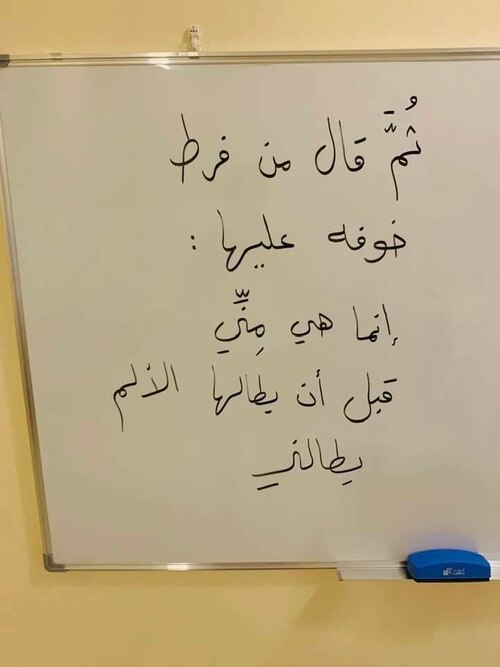 ثُمَّ قال من فرط
خوفه عليها :
إنما هي مِنِّي
قبل أن يطالها الألم
يطالني